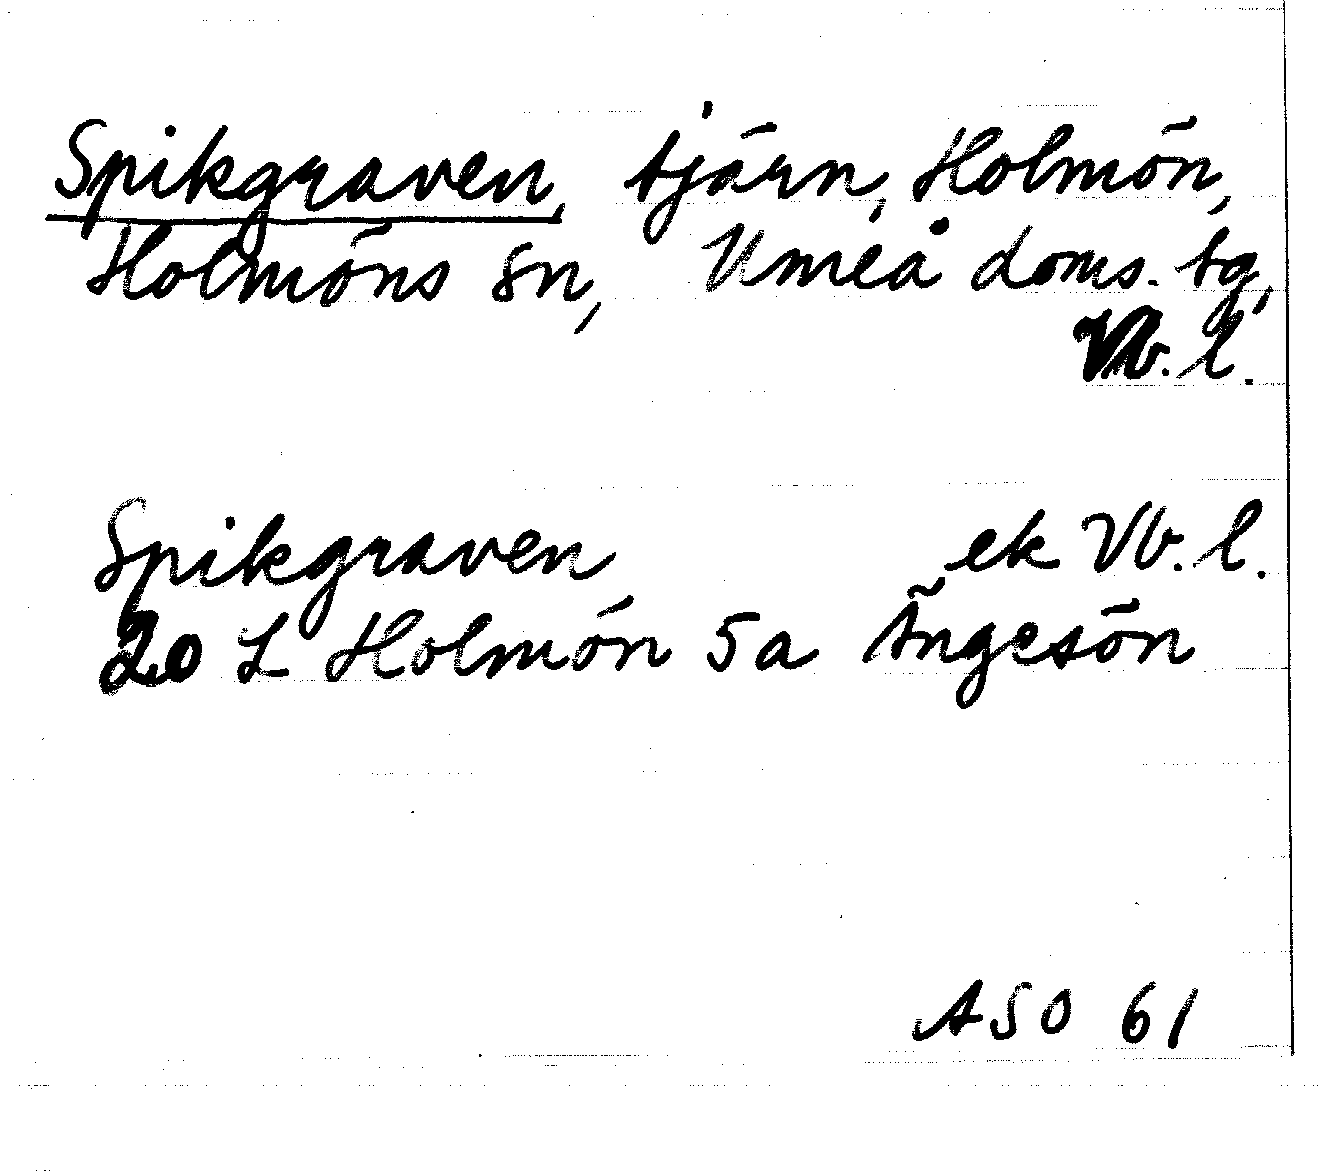 Spikgraven, tjärn, Holmön,
Holmöns sn, Umeå doms. tg,
Vb. l.
Spikgraven ek Vb. l.
20 L Holmön 5a Ängesön
ASO 61